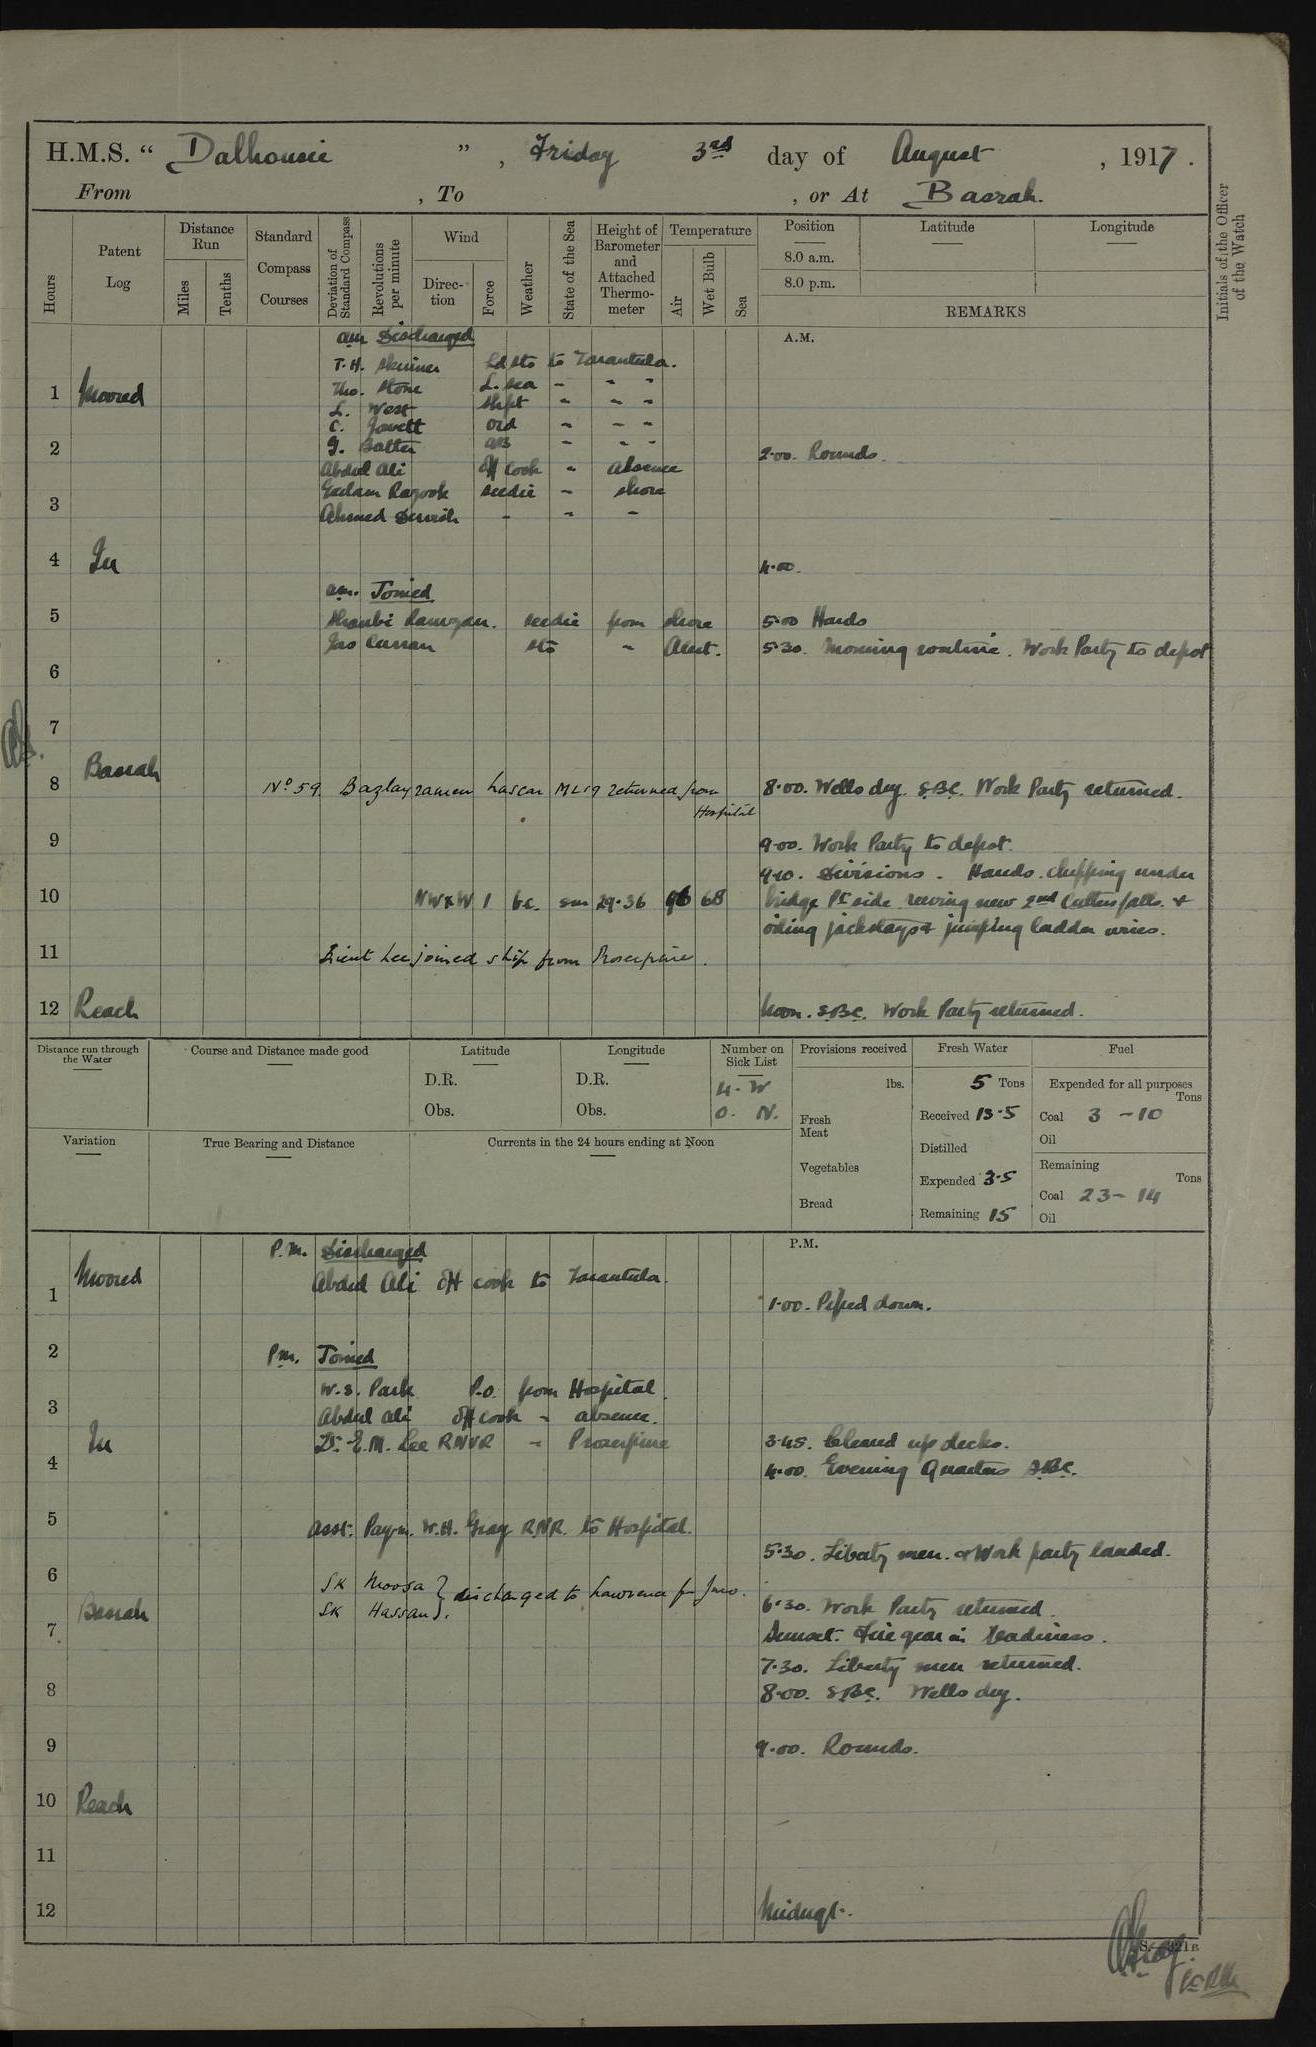 H.M.S. “ Dalhousie ” , Friday 3rd day of August , 1917.
From , To , or At Basrah.
Hours
Patent Log
Distance Run
Miles
Tenths
Standard Compass Courses
Deviation of Standard Compass
Revolutions per minute
Wind
Direction
Force
Weather
State of the Sea
Height of Barometer and Attached Thermometer
Temperature
Air
Wet Bulb
Sea
Position
8.0 a.m.
8.0 p.m.
Latitude
Longitude
REMARKS
Initials of the Officer of the Watch
A.M.
am Discharged
T.H. Skinner Ld sto to Tarantula.
Tho. Stone L. sea - - -
1 Moored
L. West shpt " - -
C. Jovett ord - - -
G. Batter AB - - -
2
2.00. Rounds.
Abdul Ali Off cook - Absence
Gulam Razook seedie - shore
3
Ahmed Dervish - - -
4 In
4.00.
am. Joined
5 Shanbi Ramzan. seedie from shore
5.00 Hands
Jas Curran sto - Alert.
5.30. Morning routine. Work Party to depot
6
7
8 Basrah
No 59. Bazlayramen Lascar ML 19 returned from Hospital
8.00. Wells dry. S.B.C. Work Party returned.
9
9.00. Work Party to depot.
9.10. Divisions. Hands chipping under
10 NW x W 1 bc. sm 29.36 96 68
bridge Pt side. reeving new 2nd Cutters falls. &
oiling jackstays & jumping ladder wires.
11 Lieut Lee joined ship from Proserpine.
12 Reach
Noon. S.B.C. Work Party returned.
Distance run through the Water
Course and Distance made good
Latitude
D.R.
Obs.
Longitude
D.R.
Obs.
Number on Sick List
4. W
0. N.
Provisions received
lbs.
Fresh Meat
Vegetables
Bread
Fresh Water
5 Tons
Received 13.5
Distilled
Expended 3.5
Remaining 15
Fuel
Expended for all purposes
Tons
Coal 3 - 10
Oil
Remaining
Tons
Coal 23 - 14
Oil
Variation
True Bearing and Distance
Currents in the 24 hours ending at Noon
P.M.
P.M. Discharged
Abdul Ali Off cook to Tarantula.
1 Moored
1.00. Piped down.
2
Pm. Joined
W.S. Park P.O. from Hospital.
3
Abdul Ali Off cook - absence.
In
Lt. E.M. Lee RNVR - Proserpine
3.45. Cleared up decks.
4
4.00. Evening Quarters S.B.C.
5
Asst. Paym. W.H. Gray R.N.R. to Hospital.
5.30. Liberty men & Work party landed.
6
SK Moosa } discharged to Lawrence
SK Hassan }
Basrah
6.30. Work Party returned.
7
Sunset. Fire gear in Readiness.
7.30. Liberty men returned.
8
8.00. S.B.C. Wells dry.
9
9.00. Rounds.
10 Reach
11
12
Midngt.
S. 321B